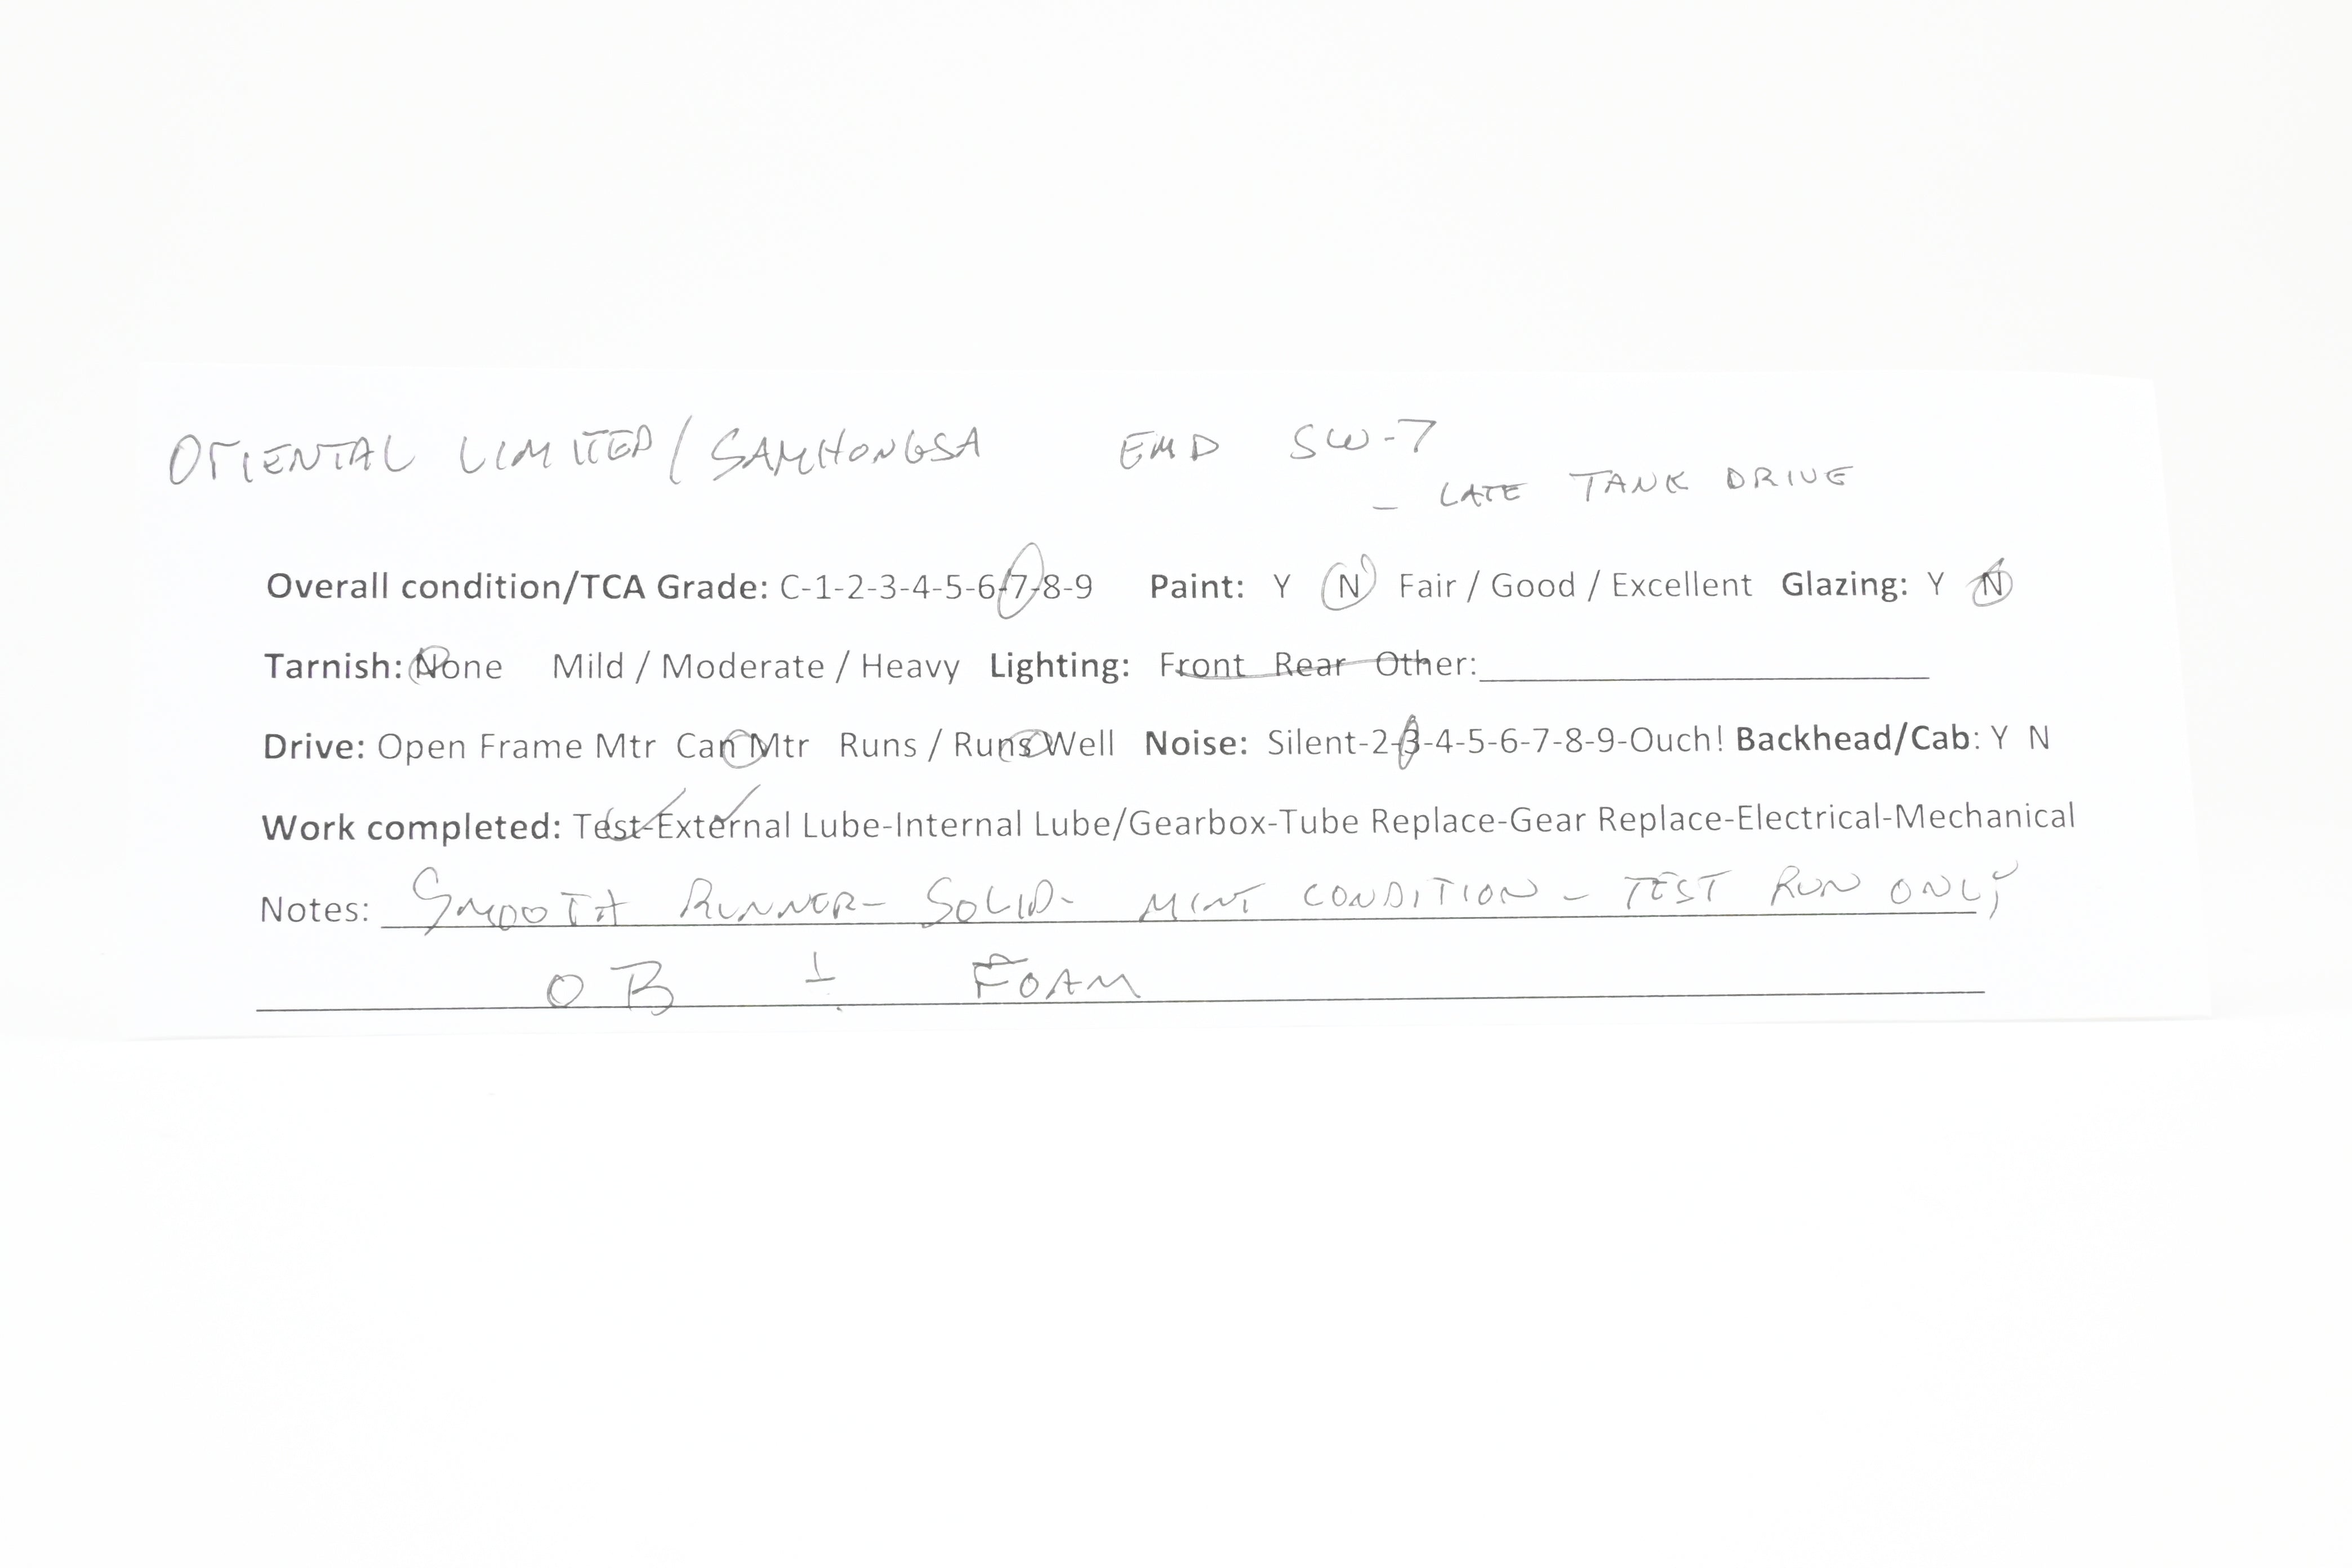 ORIENTAL LIMITED / SAMHONGSA EMD SW-7
- LATE TANK DRIVE
Overall condition/TCA Grade: C-1-2-3-4-5-6-7-8-9 Paint: Y N Fair / Good / Excellent Glazing: Y N
Tarnish: None Mild / Moderate / Heavy Lighting: Front Rear Other:
Drive: Open Frame Mtr Can Mtr Runs / Runs Well Noise: Silent-2-3-4-5-6-7-8-9-Ouch! Backhead/Cab: Y N
Work completed: Test-External Lube-Internal Lube/Gearbox-Tube Replace-Gear Replace-Electrical-Mechanical
Notes: SMOOTH RUNNER- SOLID- MINT CONDITION - TEST RUN ONLY
OB + FOAM